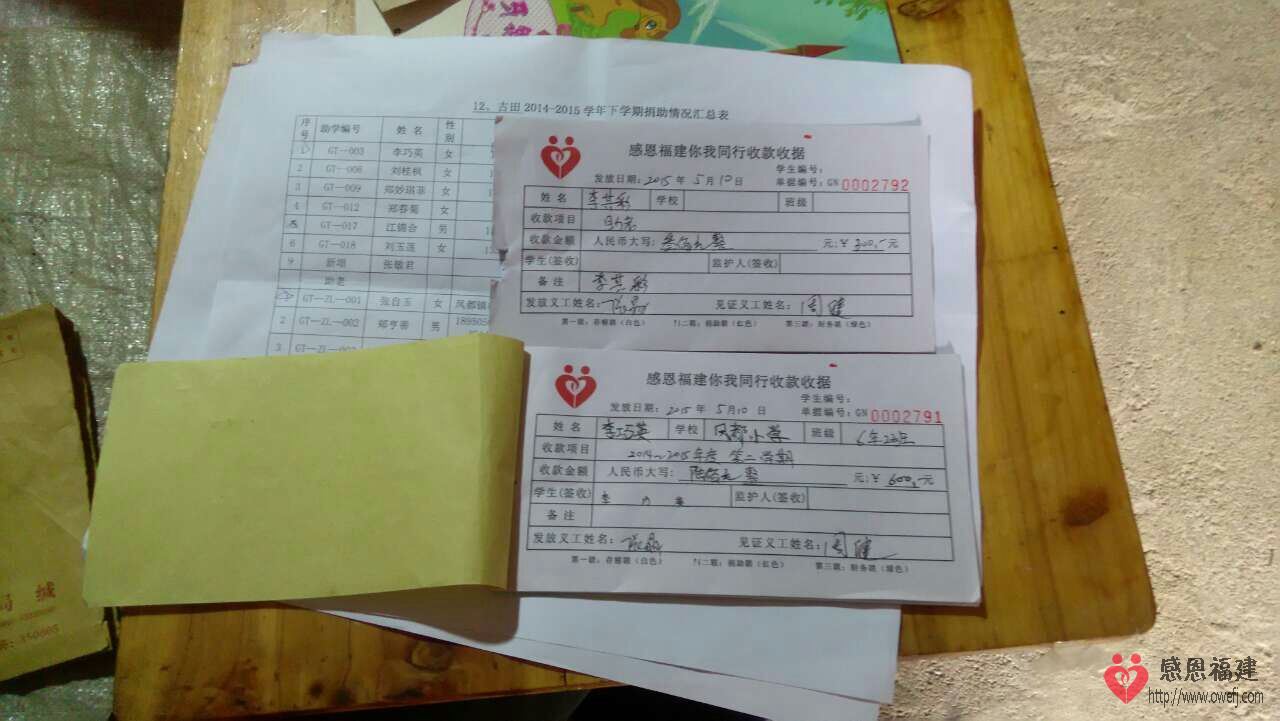 12、古田 2014-2015 学年下学期捐助情况汇总表
序号 助学编号 姓名 性别
1 GT--003 李巧英 女
2 GT--008 刘桂枫 女
3 GT--009 郑妙琪菲 女
4 GT--012 郑春菊 女
5 GT--017 江锦合 男
6 GT--018 刘玉莲 女
9 新增 张敏君
助老
GT--ZL--001 张自玉 女 凤都镇
2 GT--ZL--002 郑亨蒂 男
3 GT--ZL--
感恩福建你我同行收款收据
学生编号:
发放日期: 2015 年 5 月 10 日 单据编号: GN 0002792
姓名 李其彩 学校 班级
收款项目 助老
收款金额 人民币大写: 叁佰元整 元:¥ 300.- 元
学生(签收) 监护人(签收)
备注 李其彩
发放义工姓名: 见证义工姓名: 周健
第一联:存根联(白色) 第二联:捐助联(红色) 第三联:财务联(绿色)
感恩福建你我同行收款收据
学生编号:
发放日期: 2015 年 5 月 10 日 单据编号: GN 0002791
姓名 李巧英 学校 凤都小学 班级 6年2班
收款项目 2014~2015年度 第二学期
收款金额 人民币大写: 陆佰元整 元:¥ 600.- 元
学生(签收) 李巧英 监护人(签收)
备注
发放义工姓名: 见证义工姓名: 周健
第一联:存根联(白色) 第二联:捐助联(红色) 第三联:财务联(绿色)
局 城
350005
感恩福建
http://www.owefj.com